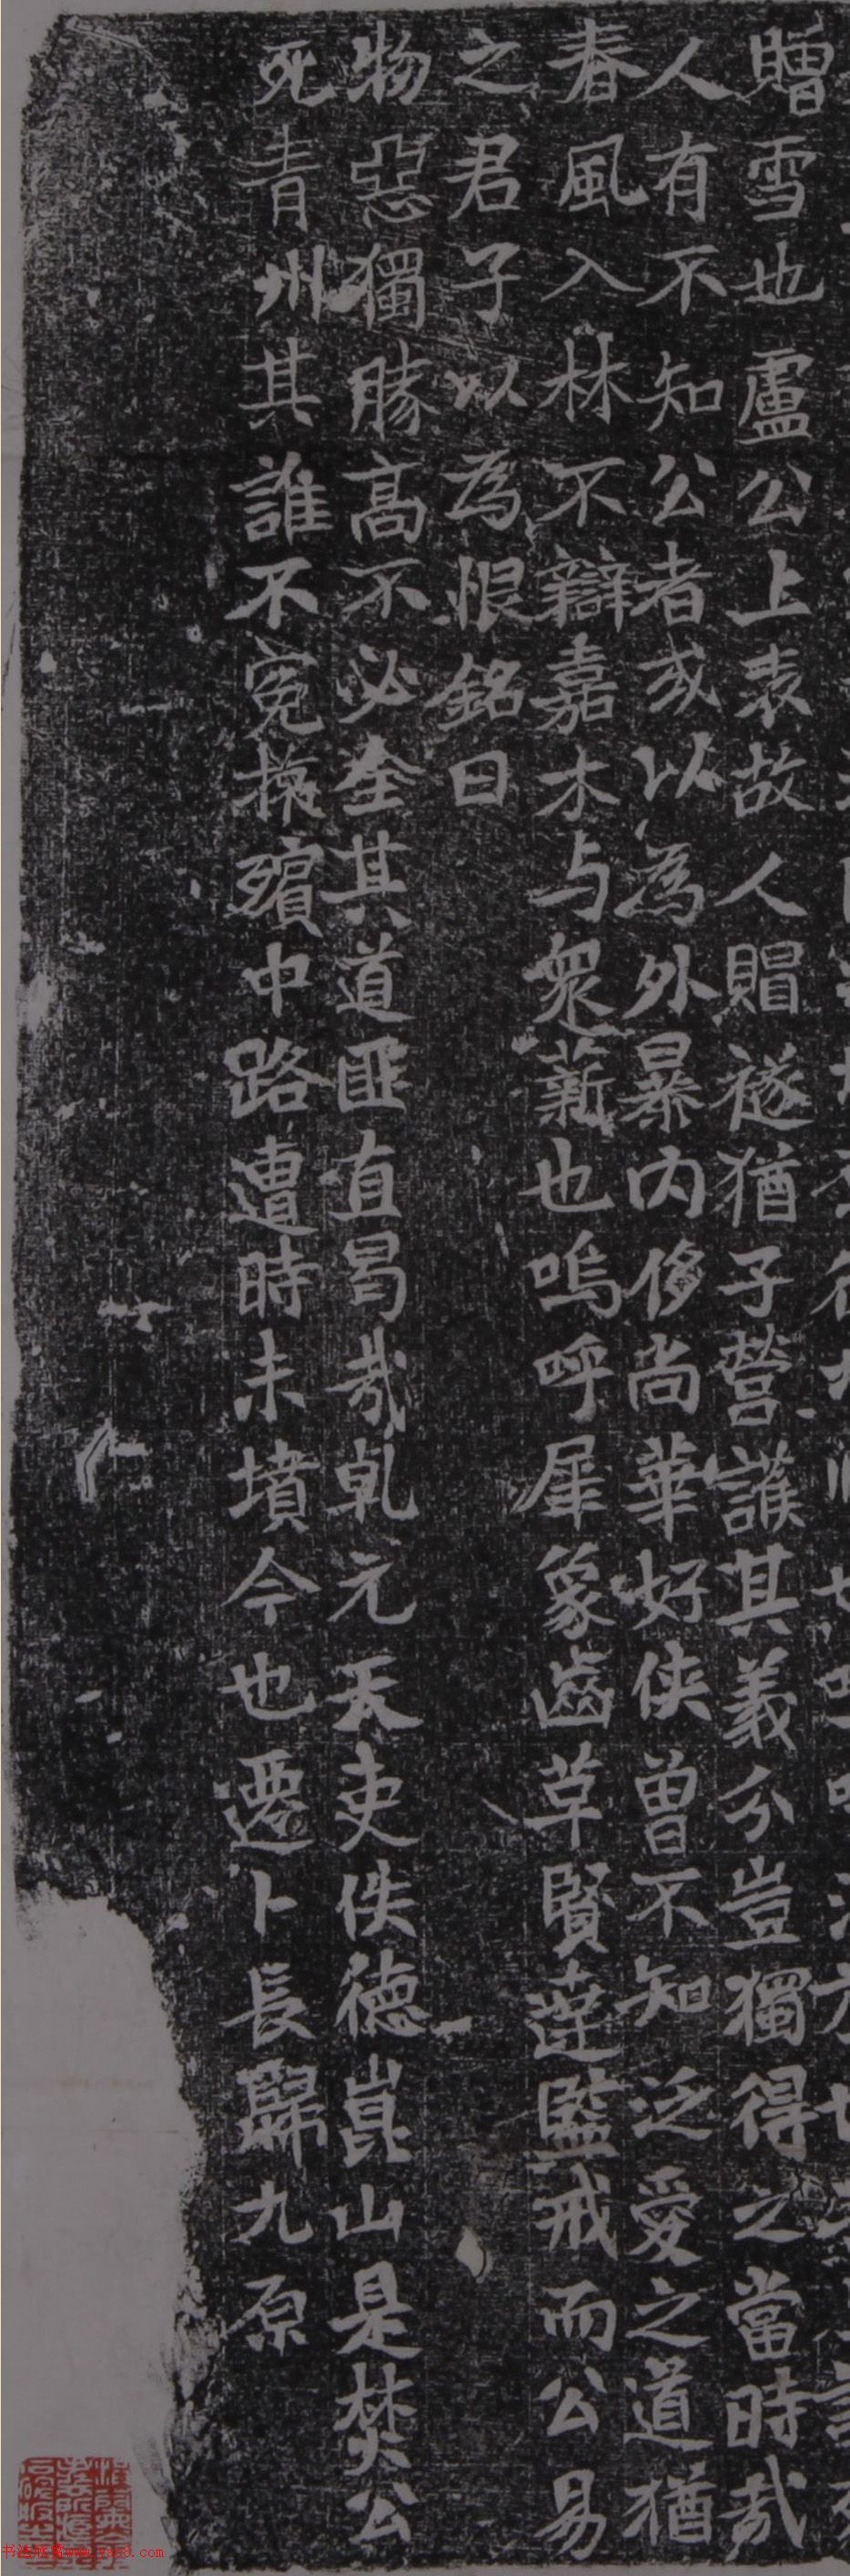 贈雪也盧公上表故人賵襚猶子營護其義分豈獨得之當時哉
人有不知公者或以為外暴内修尚華好俠曾不知泛愛之道猶
春風入林不辯嘉木与衆薪也嗚呼犀象齒草賢達監戒而公易
之君子以為恨銘曰
物惡獨勝高不必全其道匪直曷哉乹元天吏佚德崑山是焚公
死青州其誰不寃旅殯中路遭時未墳今也遷卜長歸九原
www.yac9.com